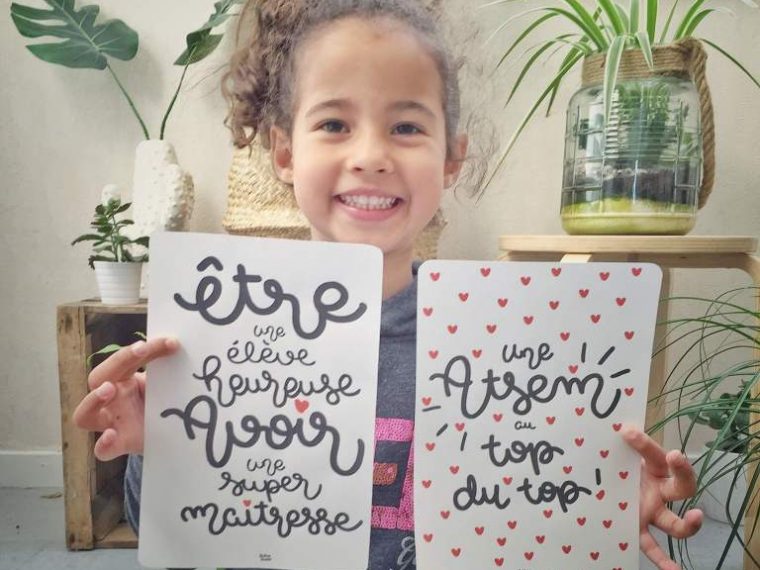 être
une
élève
heureuse
Avoir
une
super
maitresse
une
Atsem
au
top
du top!